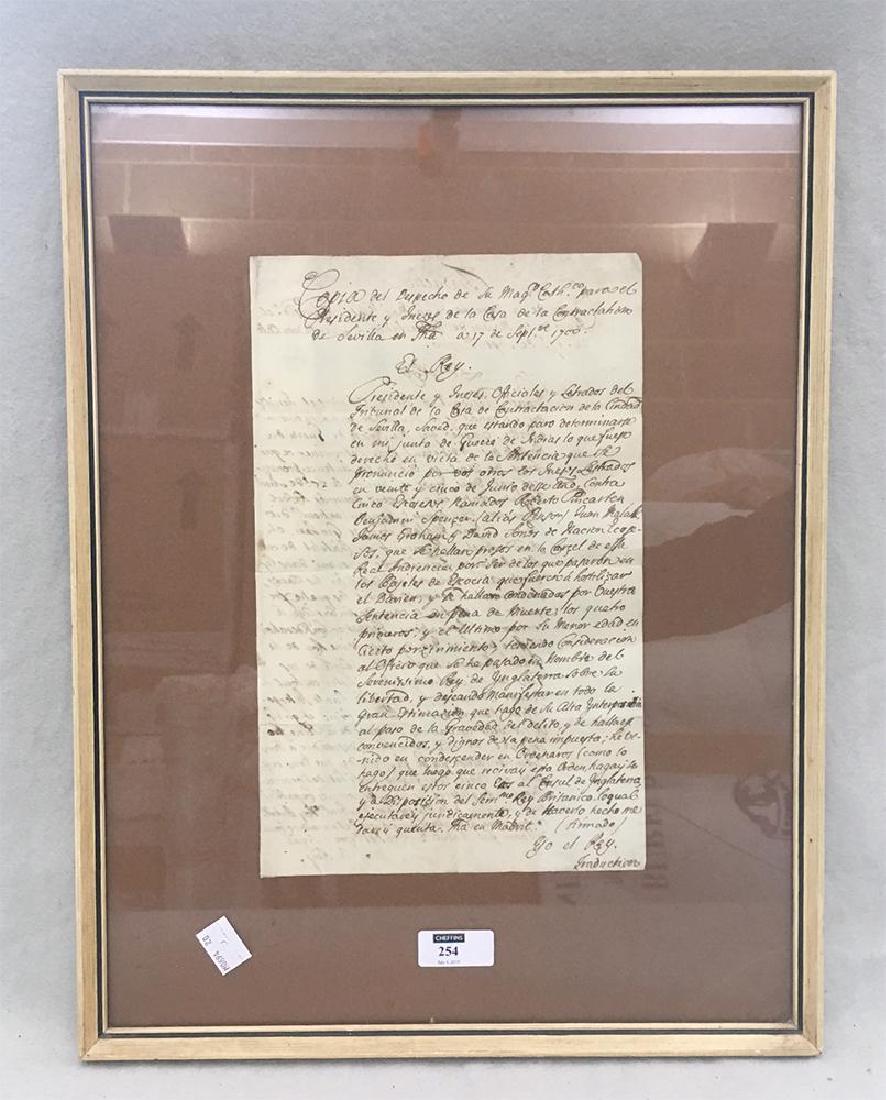 Copia del Despecho de Su Mag.d Cath.ca para el
Presidente y Jueses de la Casa de la Contractation
de Sevilla en fha a 17 de Sept.re 1700.
El Rey.
Presidente y Jueses, Oficiales y Letrados del
Tribunal de la Casa de Contractacion de la Ciudad
de Sevilla, Saved, que estando para determinarse
en mi junta de Guerra de Indias lo que fuese
derecho en vista de la Sentencia que se
pronunció por vos otros los Jueses Letrados
en veinte y cinco de Junio deste año, Contra
Cinco Escoseses llamados Roberto Pincarten
Benjamin Spenser (alias Juan
James Graham y David Jonas de Nacion Escose-
ses, que se hallan presos en la Carzel de essa
Real Audiencia por ser de los que pasaron en
los Bajeles de Escocia que fueron á hostilizar
el Darien, y se hallan Condenados por Vuestra
Sentencia en pena de Muerte; los quatro
primeros; y el Ultimo por su Menor edad en
cierto y teniendo Consideracion
al Oficio que se ha pasado en Nombre del
Serenissimo Rey de Inglaterra sobre la
libertad, y deseando Manifestar en todo la
gran Estimacion que hago de su Alta Interposicion
al paso de la Gravedad del delito, y de hallarse
convencidos, y dignos de la pena impuesta; he ve-
nido en condescender en Ordenaros (como lo
hago) que luego que recivais esta Orden, hagais se
entreguen estos cinco al Consul de Inglaterra
y á disposicion del Seren.mo Rey Britanico, lo qual
ejecutareis juridicamente, y de haverlo hecho me
dareis quenta. fha en Madrit. (firmado)
Yo el Rey.
Traduction
CHEFFINS
254